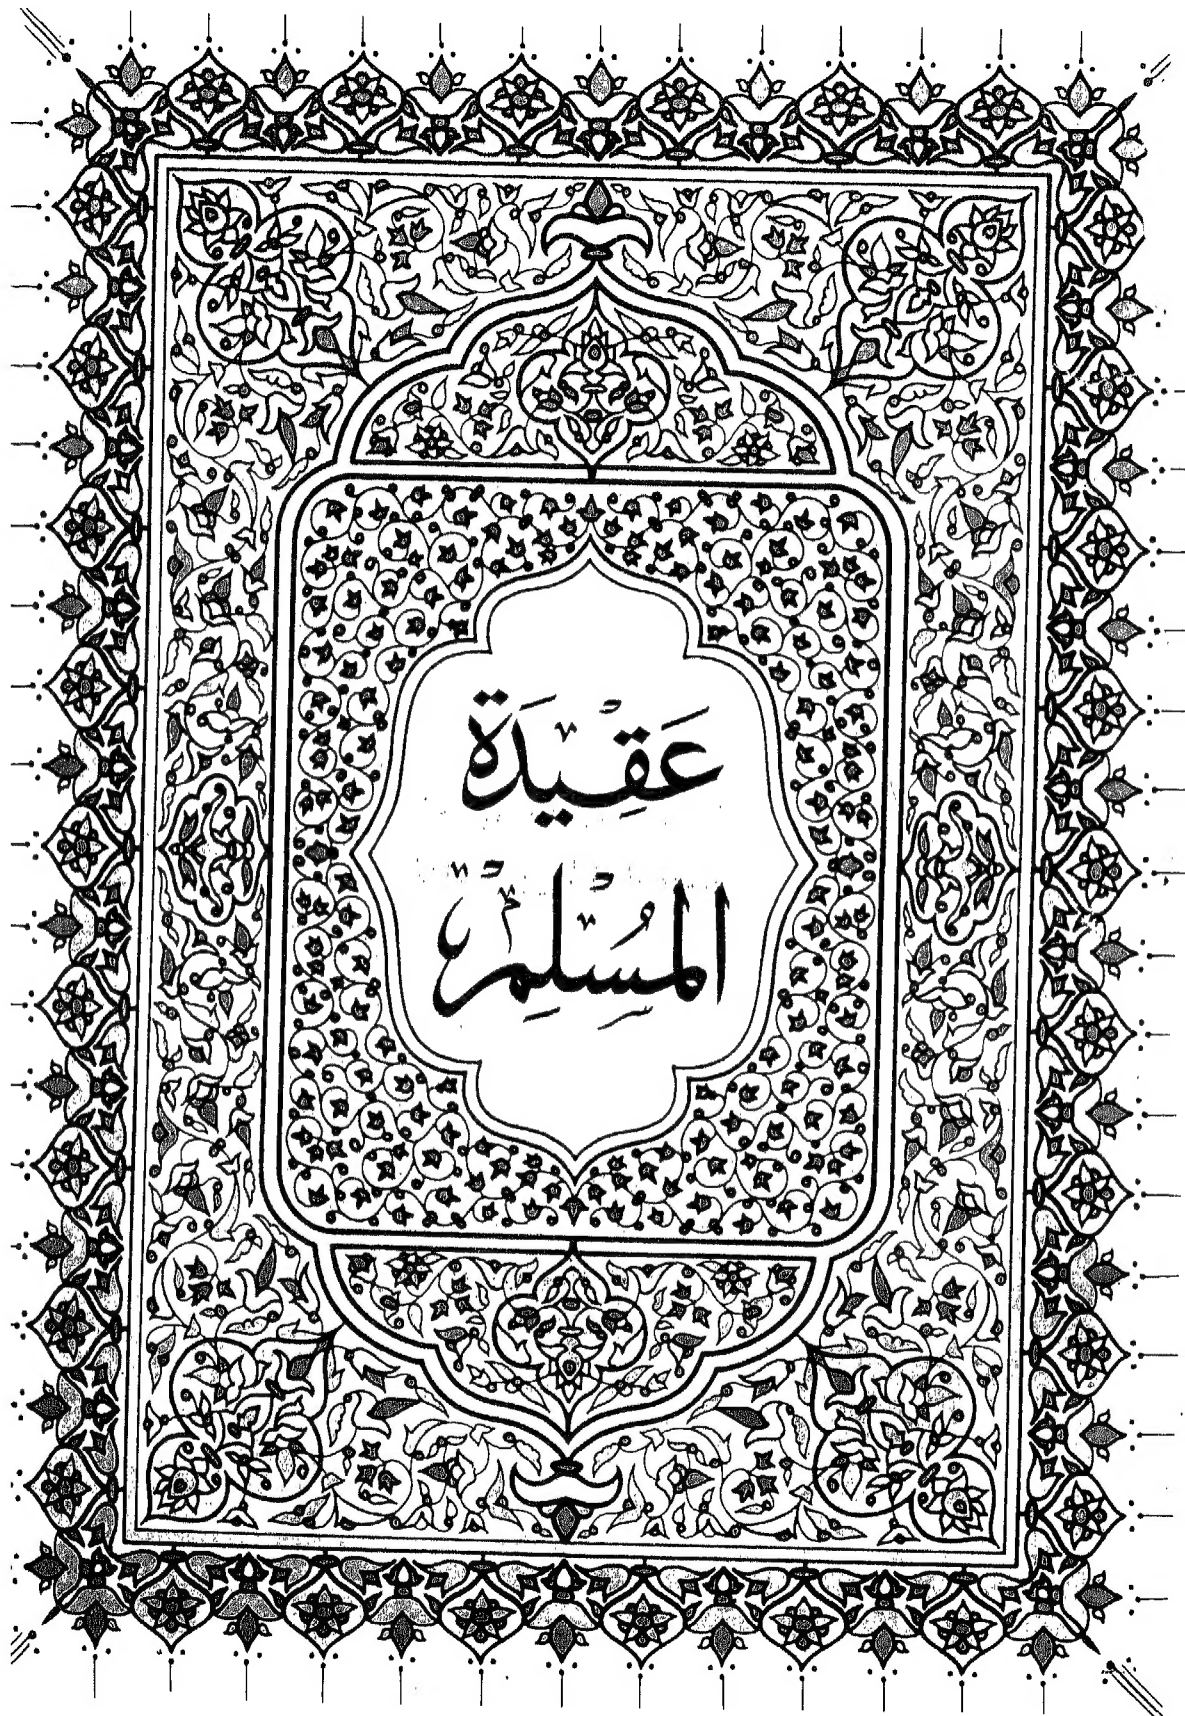 عَقِيدَة
المُسْلِم